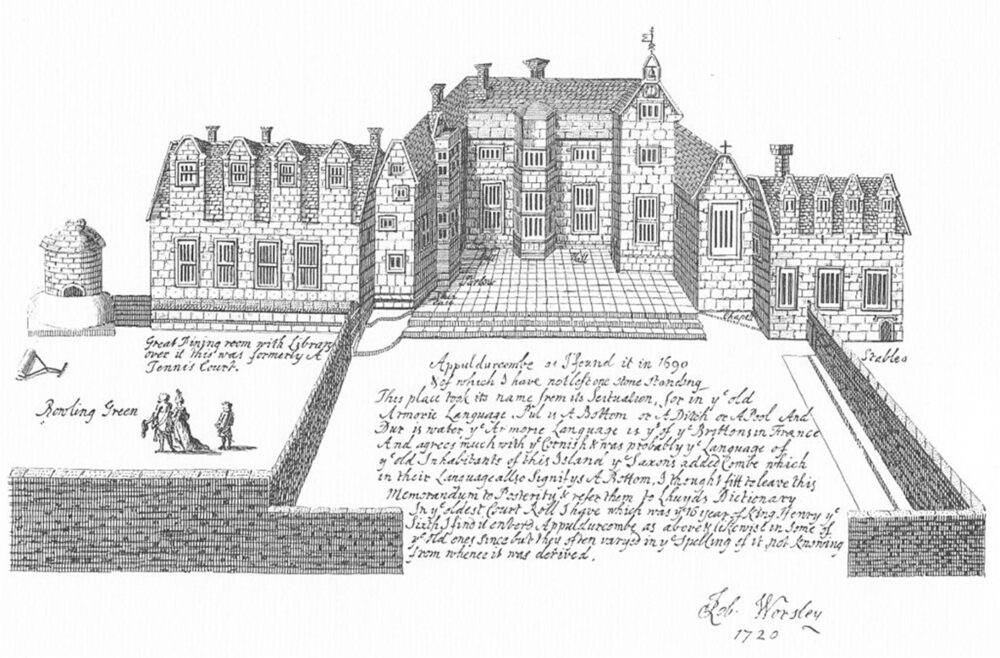 Hall
Hall
Parlour
Chapel
Great Dining room with Library
over it this was formerly A
Tennis Court.
Stables
Bowling Green
Appuldurcombe as I found it in 1690
& of which I have not left one stone standing
This place took its name from its Scituation, for in yᵉ old
Armoric Language Pul is A Bottom or A Ditch or A Pool And
Dur is water yᵉ Armoric Language is yᵗ of yᵉ Brittons in France
And agrees much with yᵉ Cornish & was probably yᵉ Language of
yᵉ old Inhabitants of this Island yᵉ Saxons added Combe which
in their Language allso Signifys A Bottom, I thought fitt to leave this
Memorandum to Posterity & refer them to Lhuyds Dictionary
In yᵉ oldest Court Roll I have which was yᵉ 16 year of King Henry yᵉ
Sixth I find it enterd Appuldurcombe as above & likewise in some of
yᵉ old ones since but they often varyed in yᵉ Spelling of it not knowing
from whence it was derived.
Rob. Worsley
1720